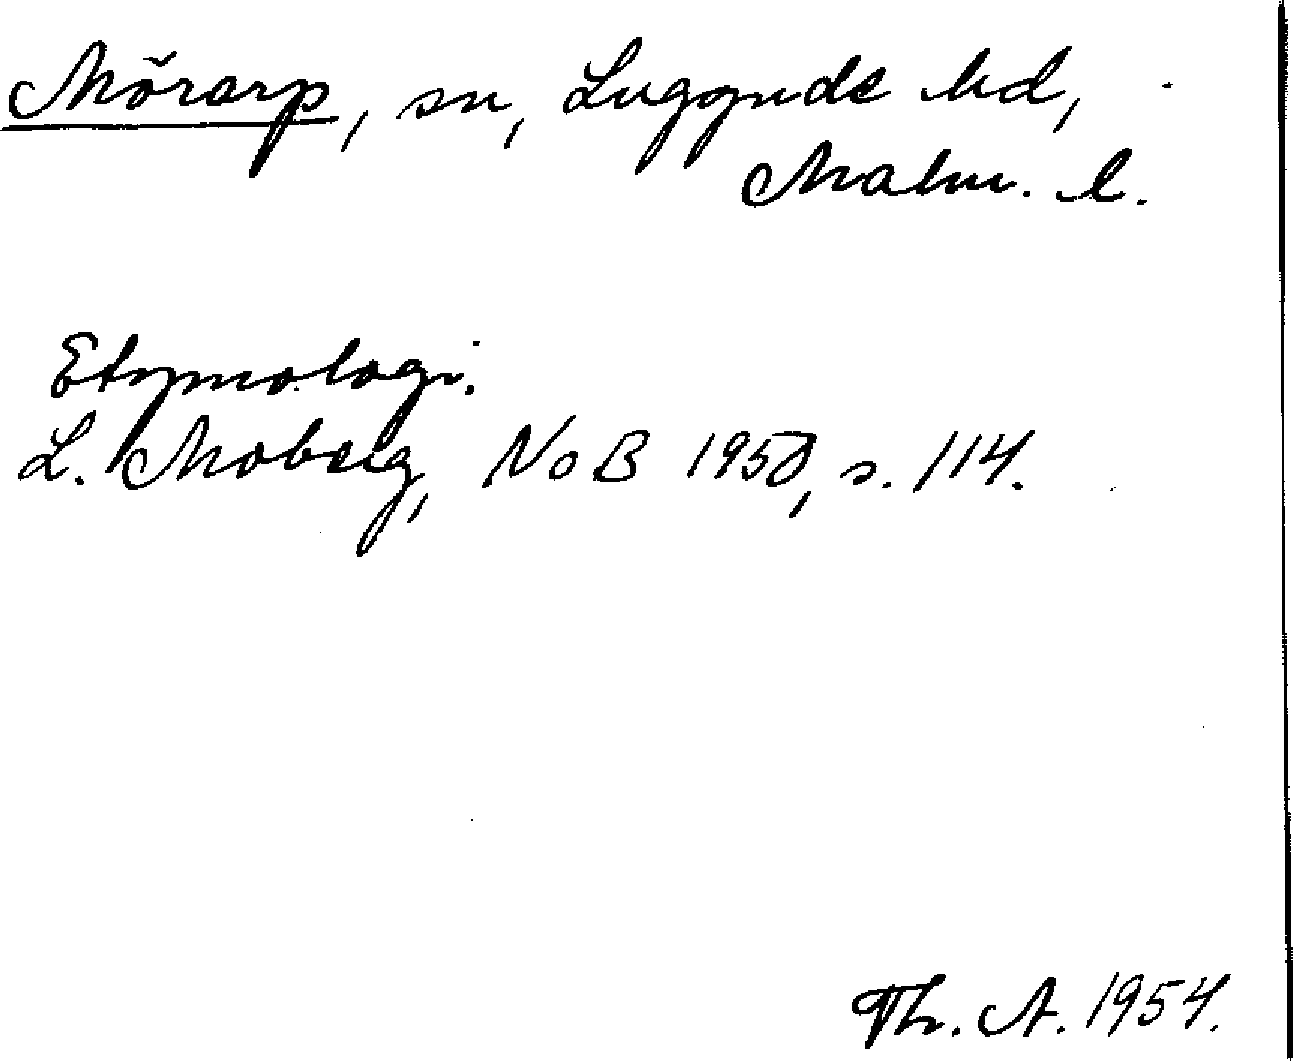 Mörarp, sn, Luggude hd,
Malm. l.
Etymologi.
L. Moberg, NoB 1950, s. 114.
Th. A. 1954.